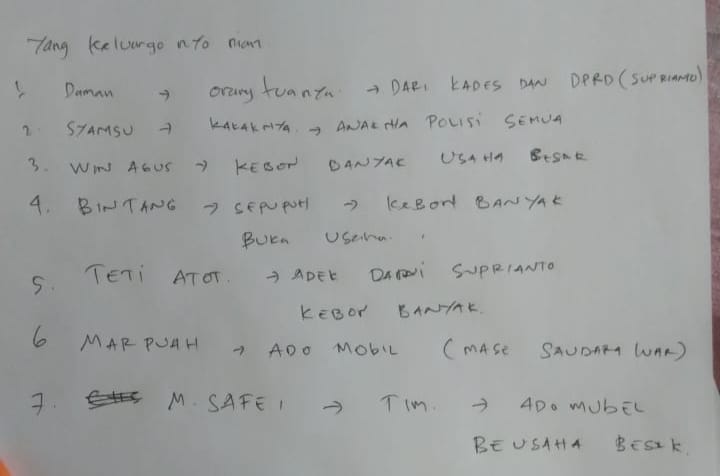 Yang keluargo nyo nian
1. Daman → orang tuanya. → DARI KADES DAN DPRD (SUPRIANTO)
2. SYAMSU → KAKAKNYA. → ANAKNYA POLISI SEMUA
3. WIN AGUS → KEBON BANYAK USAHA BESAR
4. BINTANG → SEPUPUH → KEBON BANYAK
BUKA Usaha.
5. TETI ATOT. → ADEK DARI SUPRIANTO
KEBON BANYAK.
6 MARPUAH → ADO MOBIL (MASE SAUDARA WAR)
7. M. SAFEI → TIM. → ADO MUBEL
BEUSAHA BESAK.